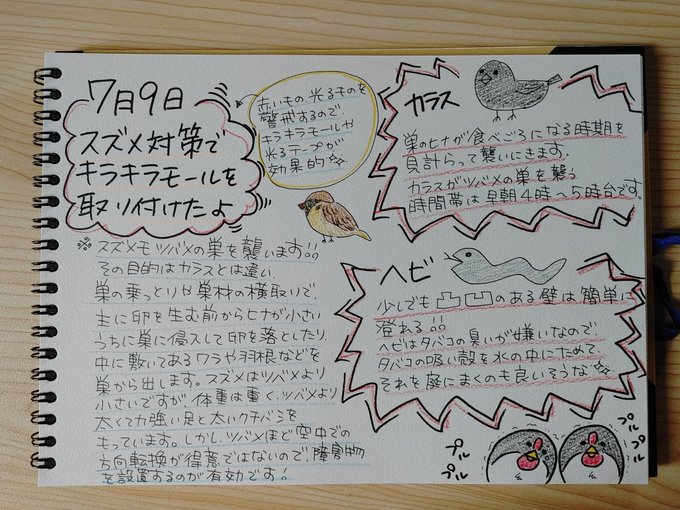 7月9日
スズメ対策で
キラキラモールを
取り付けたよ
赤いもの、光るものを
警戒するので、
キラキラモールや
光るテープが
効果的☆
※スズメモツバメの巣を襲います!!
その目的はカラスとは違い、
巣の乗っとりや巣材の横取りで、
主に卵を生む前からヒナが小さい
うちに巣に侵入して卵を落としたり、
中に敷いてあるワラや羽根などを
巣から出します。スズメはツバメより
小さいですが、体重は重く、ツバメより
太くて力強い足と太いクチバシを
もっています。しかし、ツバメほど空中での
方向転換が得意ではないので、障害物
を設置するのが有効です!
カラス
巣のヒナが食べごろになる時期を
見計らって襲いにきます。
カラスがツバメの巣を襲う
時間帯は早朝4時〜5時台です。
ヘビ
少しでも凸凹のある壁は簡単に
登れる!!
ヘビはタバコの臭いが嫌いなので、
タバコの吸い殻を水の中にためて、
それを庭にまくのも良いそうな☆
プルプル
プルプル